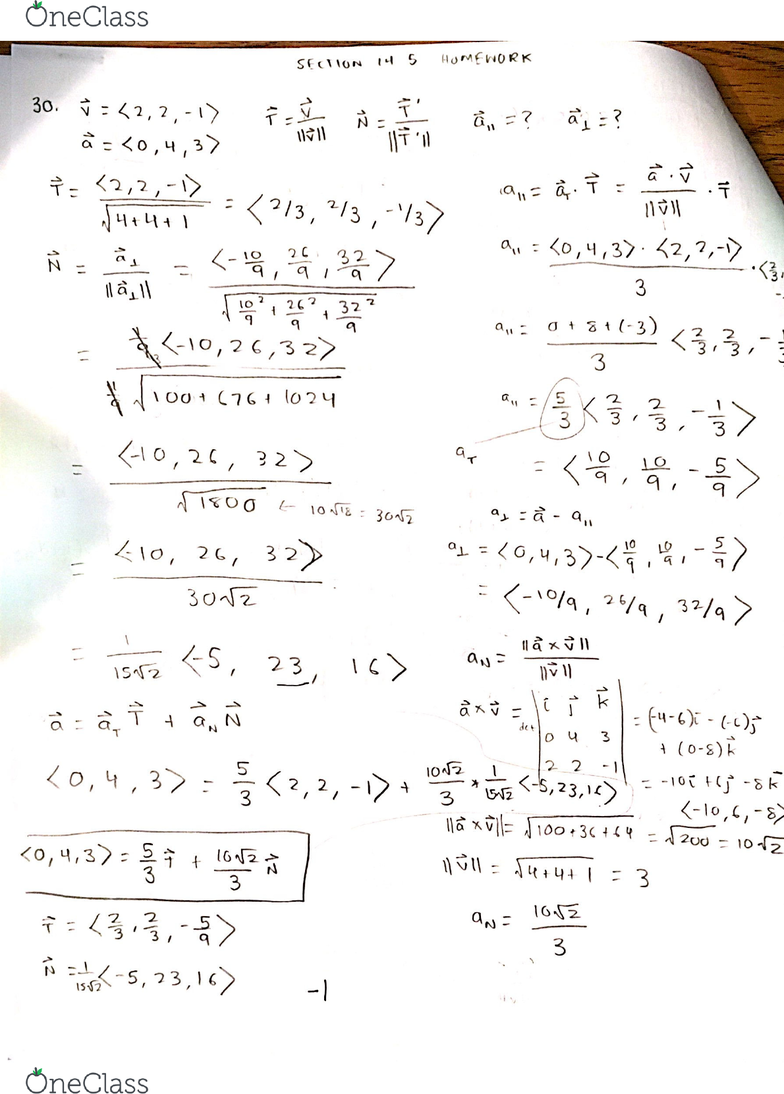 OneClass
SECTION 14 5 HOMEWORK
30. v⃗ = <2, 2, -1>
a⃗ = <0, 4, 3>
T⃗ = v⃗/||v⃗||
N⃗ = T⃗'/||T⃗'||
a⃗∥ = ?
a⃗⊥ = ?
T⃗ = <2, 2, -1>/√4+4+1 = <2/3, 2/3, -1/3>
N⃗ = a⃗⊥/||a⃗⊥|| = <-10/9, 26/9, 32/9>/√10²/9 + 26²/9 + 32²/9
= 1/9 <-10, 26, 32>
1/9 √100+676+1024
= <-10, 26, 32>
√1800 ← 10√18 = 30√2
= <-10, 26, 32>
30√2
= 1/15√2 <-5, 23, 16>
a⃗ = a⃗T T⃗ + a⃗N N⃗
<0, 4, 3> = 5/3 <2, 2, -1> + 10√2/3 * 1/15√2 <-5, 23, 16>
<0, 4, 3> = 5/3 T⃗ + 10√2/3 N⃗
T⃗ = <2/3, 2/3, -5/9>
N⃗ = 1/15√2 <-5, 23, 16>
-1
a∥ = a⃗T · T⃗ = a⃗ · v⃗/||v⃗|| · T⃗
a∥ = <0, 4, 3> · <2, 2, -1>/3 · <2/3,
a∥ = 0 + 8 + (-3)/3 <2/3, 2/3, -1/3
a∥ = 5/3 <2/3, 2/3, -1/3>
aT
= <10/9, 10/9, -5/9>
a⊥ = a⃗ - a∥
a⊥ = <0, 4, 3> - <10/9, 10/9, -5/9>
= <-10/9, 26/9, 32/9>
aN = ||a⃗ x v⃗||/||v⃗||
a⃗ x v⃗ = det | i j⃗ k⃗ | = (-4-6)i⃗ - (-6)j⃗
0 4 3 + (0-8)k⃗
2 2 -1 = -10i + 6j - 8k⃗
<-10, 6, -8>
||a⃗ x v⃗|| = √100+36+64 = √200 = 10√2
||v⃗|| = √4+4+1 = 3
aN = 10√2/3
OneClass